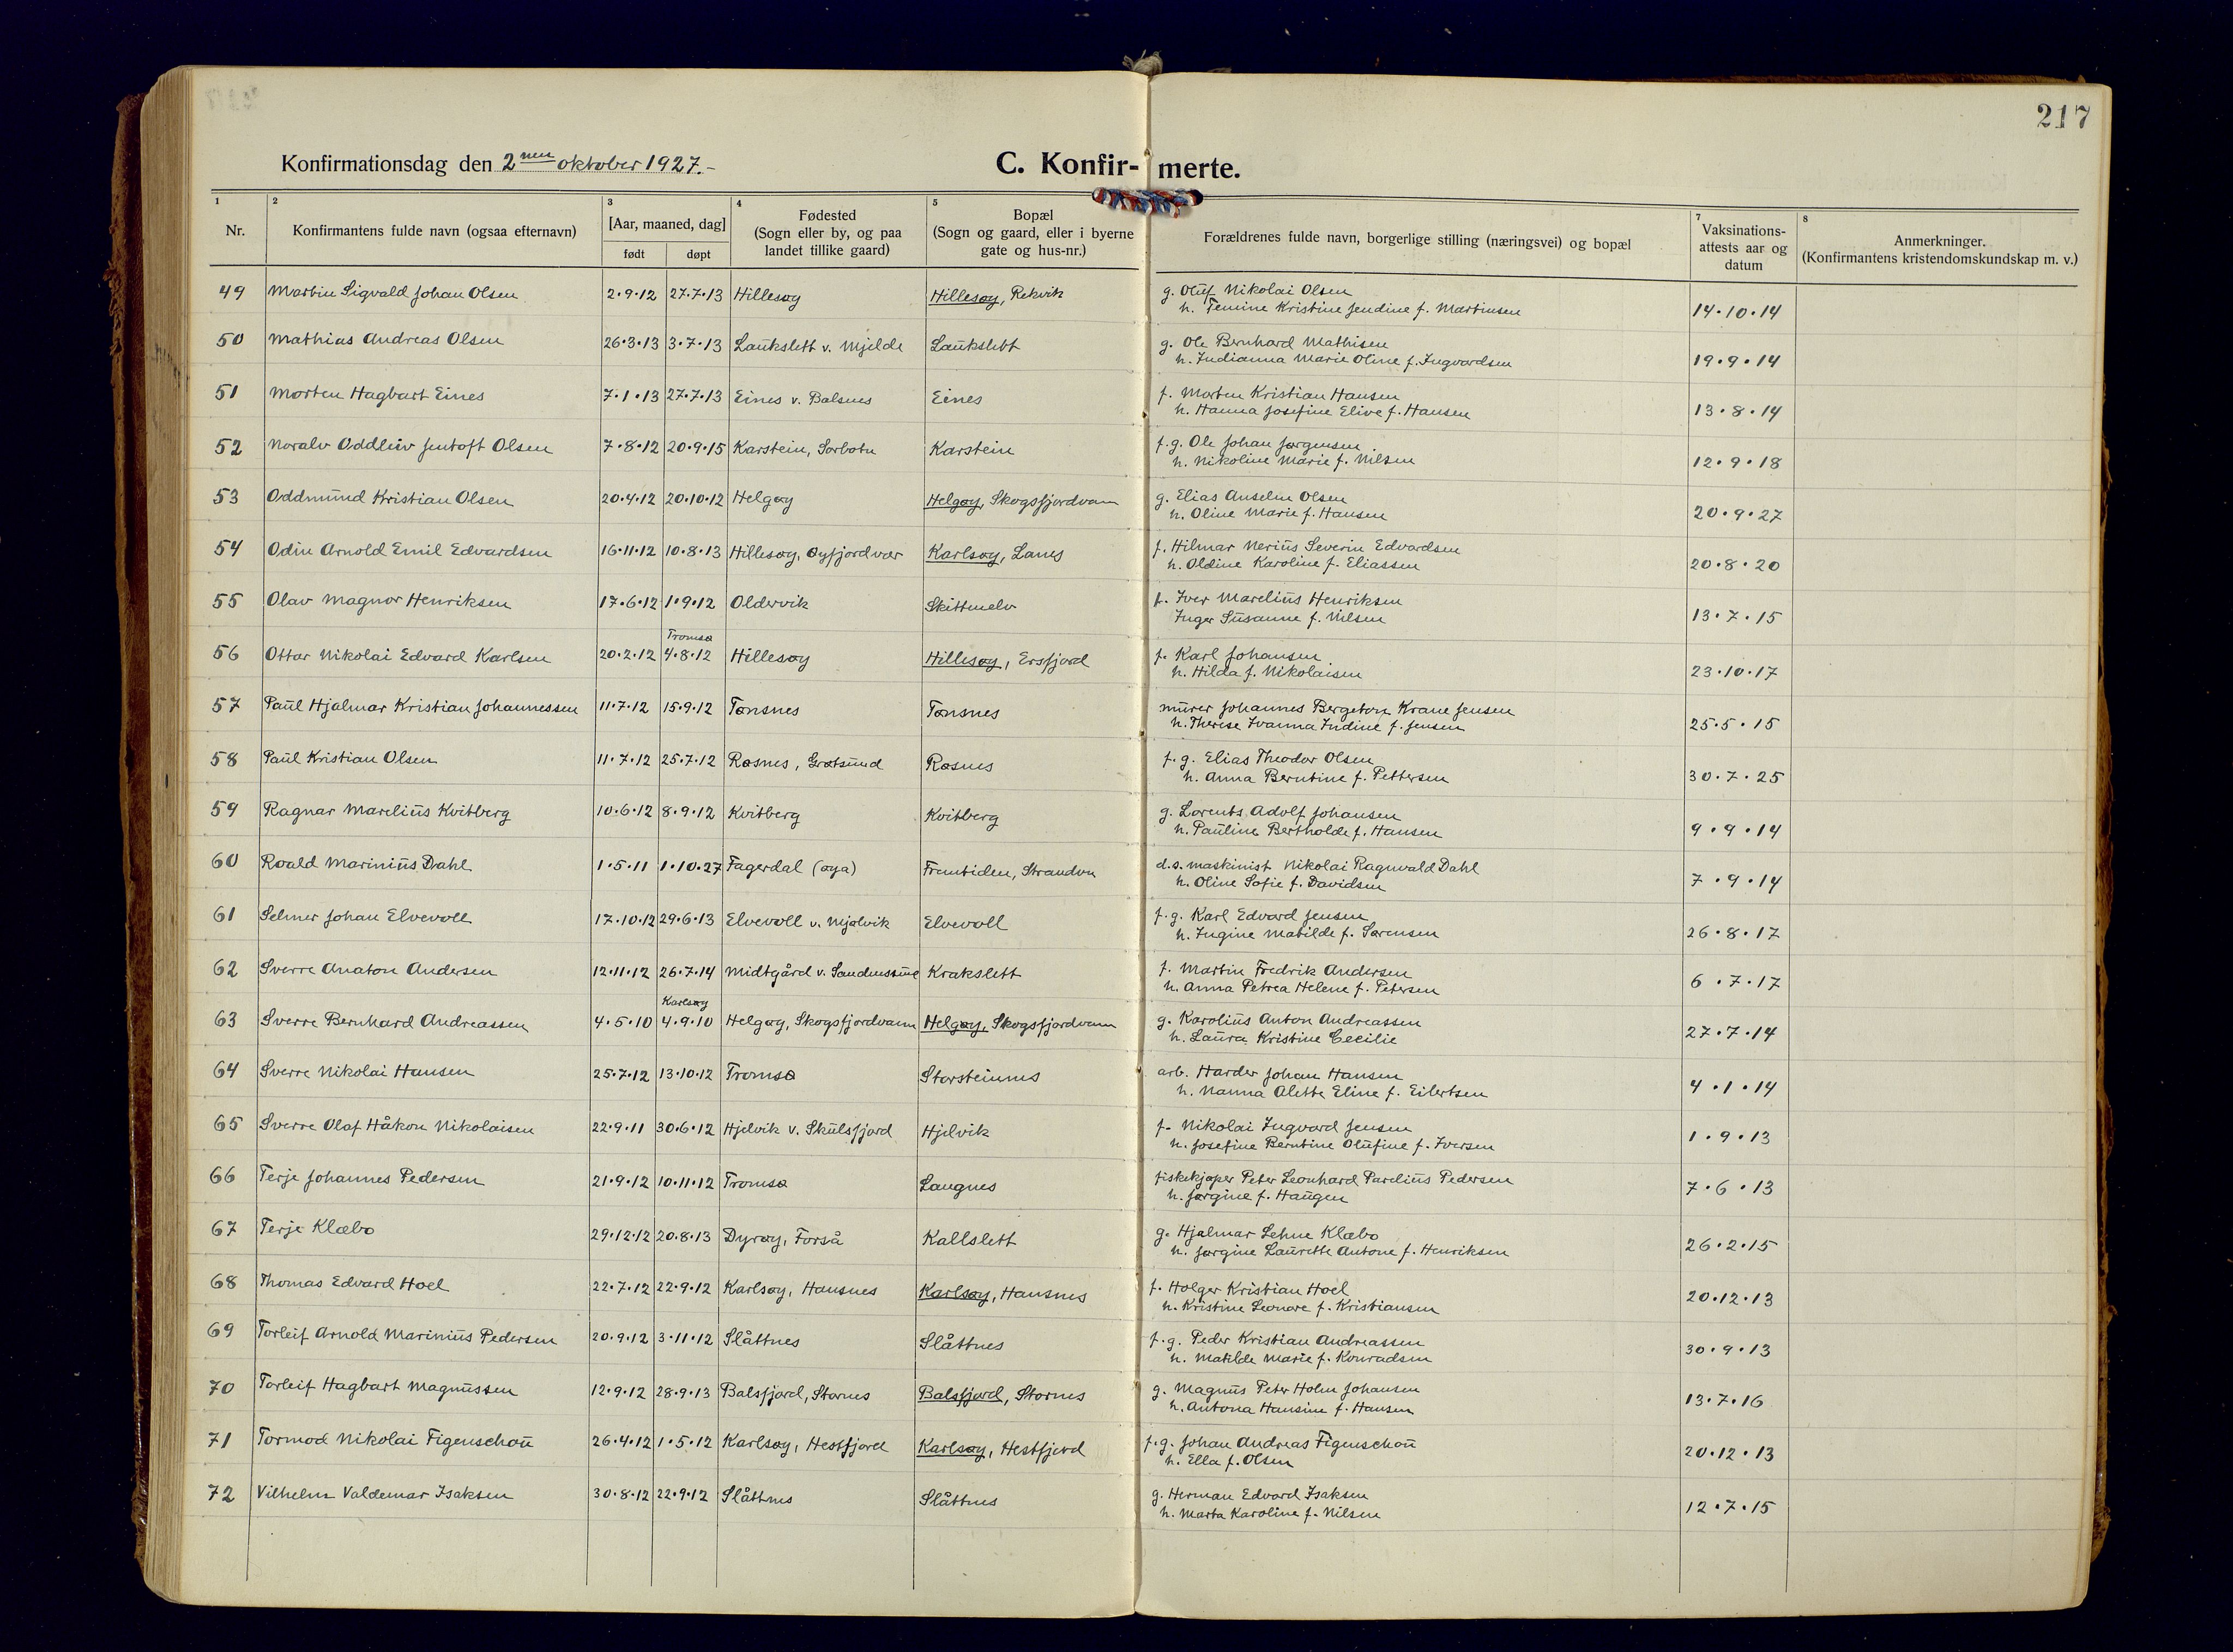 217
Konfirmationsdag den 2nen oktober 1927.-
C. Konfir- merte.
1 2 3 4 5 7 8
Nr.
Konfirmantens fulde navn (ogsaa efternavn)
[Aar, maaned, dag]
født døpt
Fødested
(Sogn eller by, og paa
landet tillike gaard)
Bopæl
(Sogn og gaard, eller i byerne
gate og hus-nr.)
Forældrenes fulde navn, borgerlige stilling (næringsvei) og bopæl
Vaksinations-
attests aar og
datum
Anmerkninger.
(Konfirmantens kristendomskundskap m. v.)
49 Martin Sigvald Johan Olsen 2.9.12 27.7.13 Hillesøy Hillesøy, Rekvik g. Oluf Nikolai Olsen
h. Femine Kristine Jendine f. Martinsen 14.10.14
50 Mathias Andreas Olsen 26.3.13 3.7.13 Laukslett v. Mjelde Laukslett g. Ole Bernhard Mathisen
h. Indianna Marie Oline f. Ingvardsen 19.9.14
51 Morten Hagbart Eines 7.1.13 27.7.13 Eines v. Balsnes Eines f. Morten Kristian Hansen
h. Hanna Josefine Elive f. Hansen 13.8.14
52 Noralv Oddleiv Jentoft Olsen 7.8.12 20.9.15 Karstein, Sørbotn Karstein f.g. Ole Johan Jørgensen
h. Nikoline Marie f. Nilsen 12.9.18
53 Oddmund Kristian Olsen 20.4.12 20.10.12 Helgøy Helgøy, Skogsfjordvan g. Elias Anselm Olsen
h. Oline Marie f. Hansen 20.9.27
54 Odin Arnold Emil Edvardsen 16.11.12 10.8.13 Hillesøy, Øyfjordvær Karlsøy, Lanes f. Hilmar Nerius Severin Edvardsen
h. Oldine Karoline f. Eliassen 20.8.20
55 Olav Magnor Henriksen 17.6.12 1.9.12 Oldervik Skittenelv f. Iver Marelius Henriksen
Inger Susanne f. Nilsen 13.7.15
Tromsø
56 Ottar Nikolai Edvard Karlsen 20.2.12 4.8.12 Hillesøy Hillesøy, Ersfjord f. Karl Johansen
h. Hilda f. Nikolaisen 23.10.17
57 Paul Hjalmar Kristian Johannessen 11.7.12 15.9.12 Tønsnes Tønsnes murer Johannes Bergeton Krane Jensen
h. Therese Ivanna Indine f. Jensen 25.5.15
58 Paul Kristian Olsen 11.7.12 25.7.12 Røsnes, Grøtsund Røsnes f.g. Elias Theodor Olsen
h. Anna Berntine f. Pettersen 30.7.25
59 Ragnar Marelius Kvitberg 10.6.12 8.9.12 Kvitberg Kvitberg g. Lorents Adolf Johansen
h. Pauline Bertholde f. Hansen 9.9.14
60 Roald Marinius Dahl 1.5.11 1.10.27 Fagerdal (øya) Fremtiden, Strandvn d.s. maskinist Nikolai Ragnvald Dahl
h. Oline Sofie f. Davidsen 7.9.14
61 Selmer Johan Elvevoll 17.10.12 29.6.13 Elvevoll v. Mjølvik Elvevoll f.g. Karl Edvard Jensen
h. Ingine Matilde f. Sørensen 26.8.17
62 Sverre Anaton Andersen 12.11.12 26.7.14 Midtgård v. Sandnessund Krakslett f. Martin Fredrik Andersen
h. Anna Petrea Helene f. Petersen 6.7.17
Karlsøy
63 Sverre Bernhard Andreassen 4.5.10 4.9.10 Helgøy, Skogsfjordvann Helgøy, Skogsfjordvann g. Karolius Anton Andreassen
h. Laura Kristine Cecilie 27.7.14
64 Sverre Nikolai Hansen 25.7.12 13.10.12 Tromsø Storsteinnes arb. Harder Johan Hansen
h. Nanna Alette Eline f. Eilertsen 4.1.14
65 Sverre Olaf Håkon Nikolaisen 22.9.11 30.6.12 Hjelvik v. Skulsfjord Hjelvik f. Nikolai Ingvard Jensen
h. Josefine Berntine Olufine f. Iversen 1.9.13
66 Terje Johannes Pedersen 21.9.12 10.11.12 Tromsø Langnes fiskekjøper Peter Leonhard Parelius Pedersen
h. Jørgine f. Haugen 7.6.13
67 Terje Klæbo 29.12.12 20.8.13 Dyrøy, Forså Kallslett g. Hjalmar Lehne Klæbo
h. Jørgine Laurette Antone f. Henriksen 26.2.15
68 Thomas Edvard Hoel 22.7.12 22.9.12 Karlsøy, Hansnes Karlsøy, Hansnes f. Holger Kristian Hoel
h. Kristine Leonore f. Kristiansen 20.12.13
69 Torleif Arnold Marinius Pedersen 20.9.12 3.11.12 Slåttnes Slåttnes f.g. Peder Kristian Andreassen
h. Matilde Marie f. Konradsen 30.9.13
70 Torleif Hagbart Magnussen 12.9.12 28.9.13 Balsfjord, Stornes Balsfjord, Stornes g. Magnus Peter Holm Johansen
h. Antona Hansine f. Hansen 13.7.16
71 Tormod Nikolai Figenschou 26.4.12 1.5.12 Karlsøy, Hestfjord Karlsøy, Hestfjord f.g. Johan Andreas Figenschou
h. Ella f. Olsen 20.12.13
72 Vilhelm Valdemar Isaksen 30.8.12 22.9.12 Slåttnes Slåttnes g. Herman Edvard Isaksen
h. Marta Karoline f. Nilsen 12.7.15